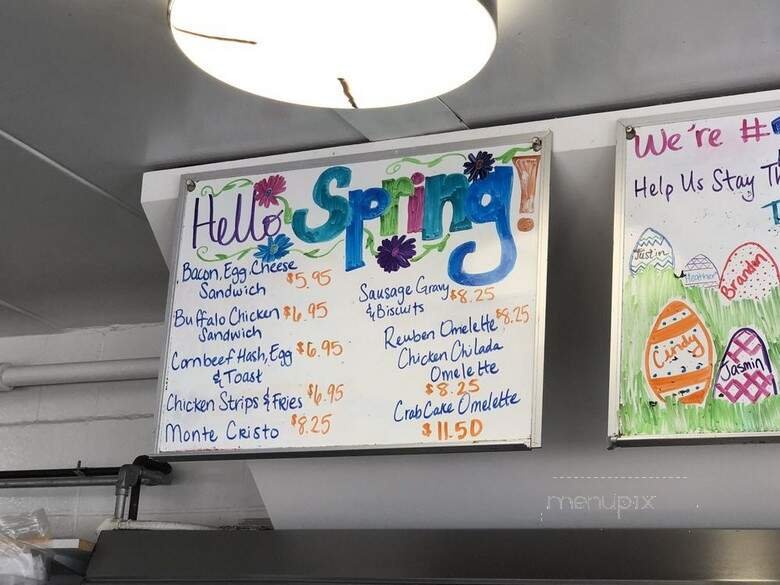 Hello Spring!
Bacon, Egg, Cheese
Sandwich $5.95
Buffalo Chicken $6.95
Sandwich
Cornbeef Hash, Egg $6.95
& Toast
Chicken Strips & Fries $6.95
Monte Cristo $8.25
Sausage Gravy $8.25
& Biscuits
Reuben Omelette $8.25
Chicken Chilada
Omelette
$8.25
Crab Cake Omelette
$11.50
We're #
Help Us Stay
Justin
Heather
Brandin
Cindy
Jasmin
menupix